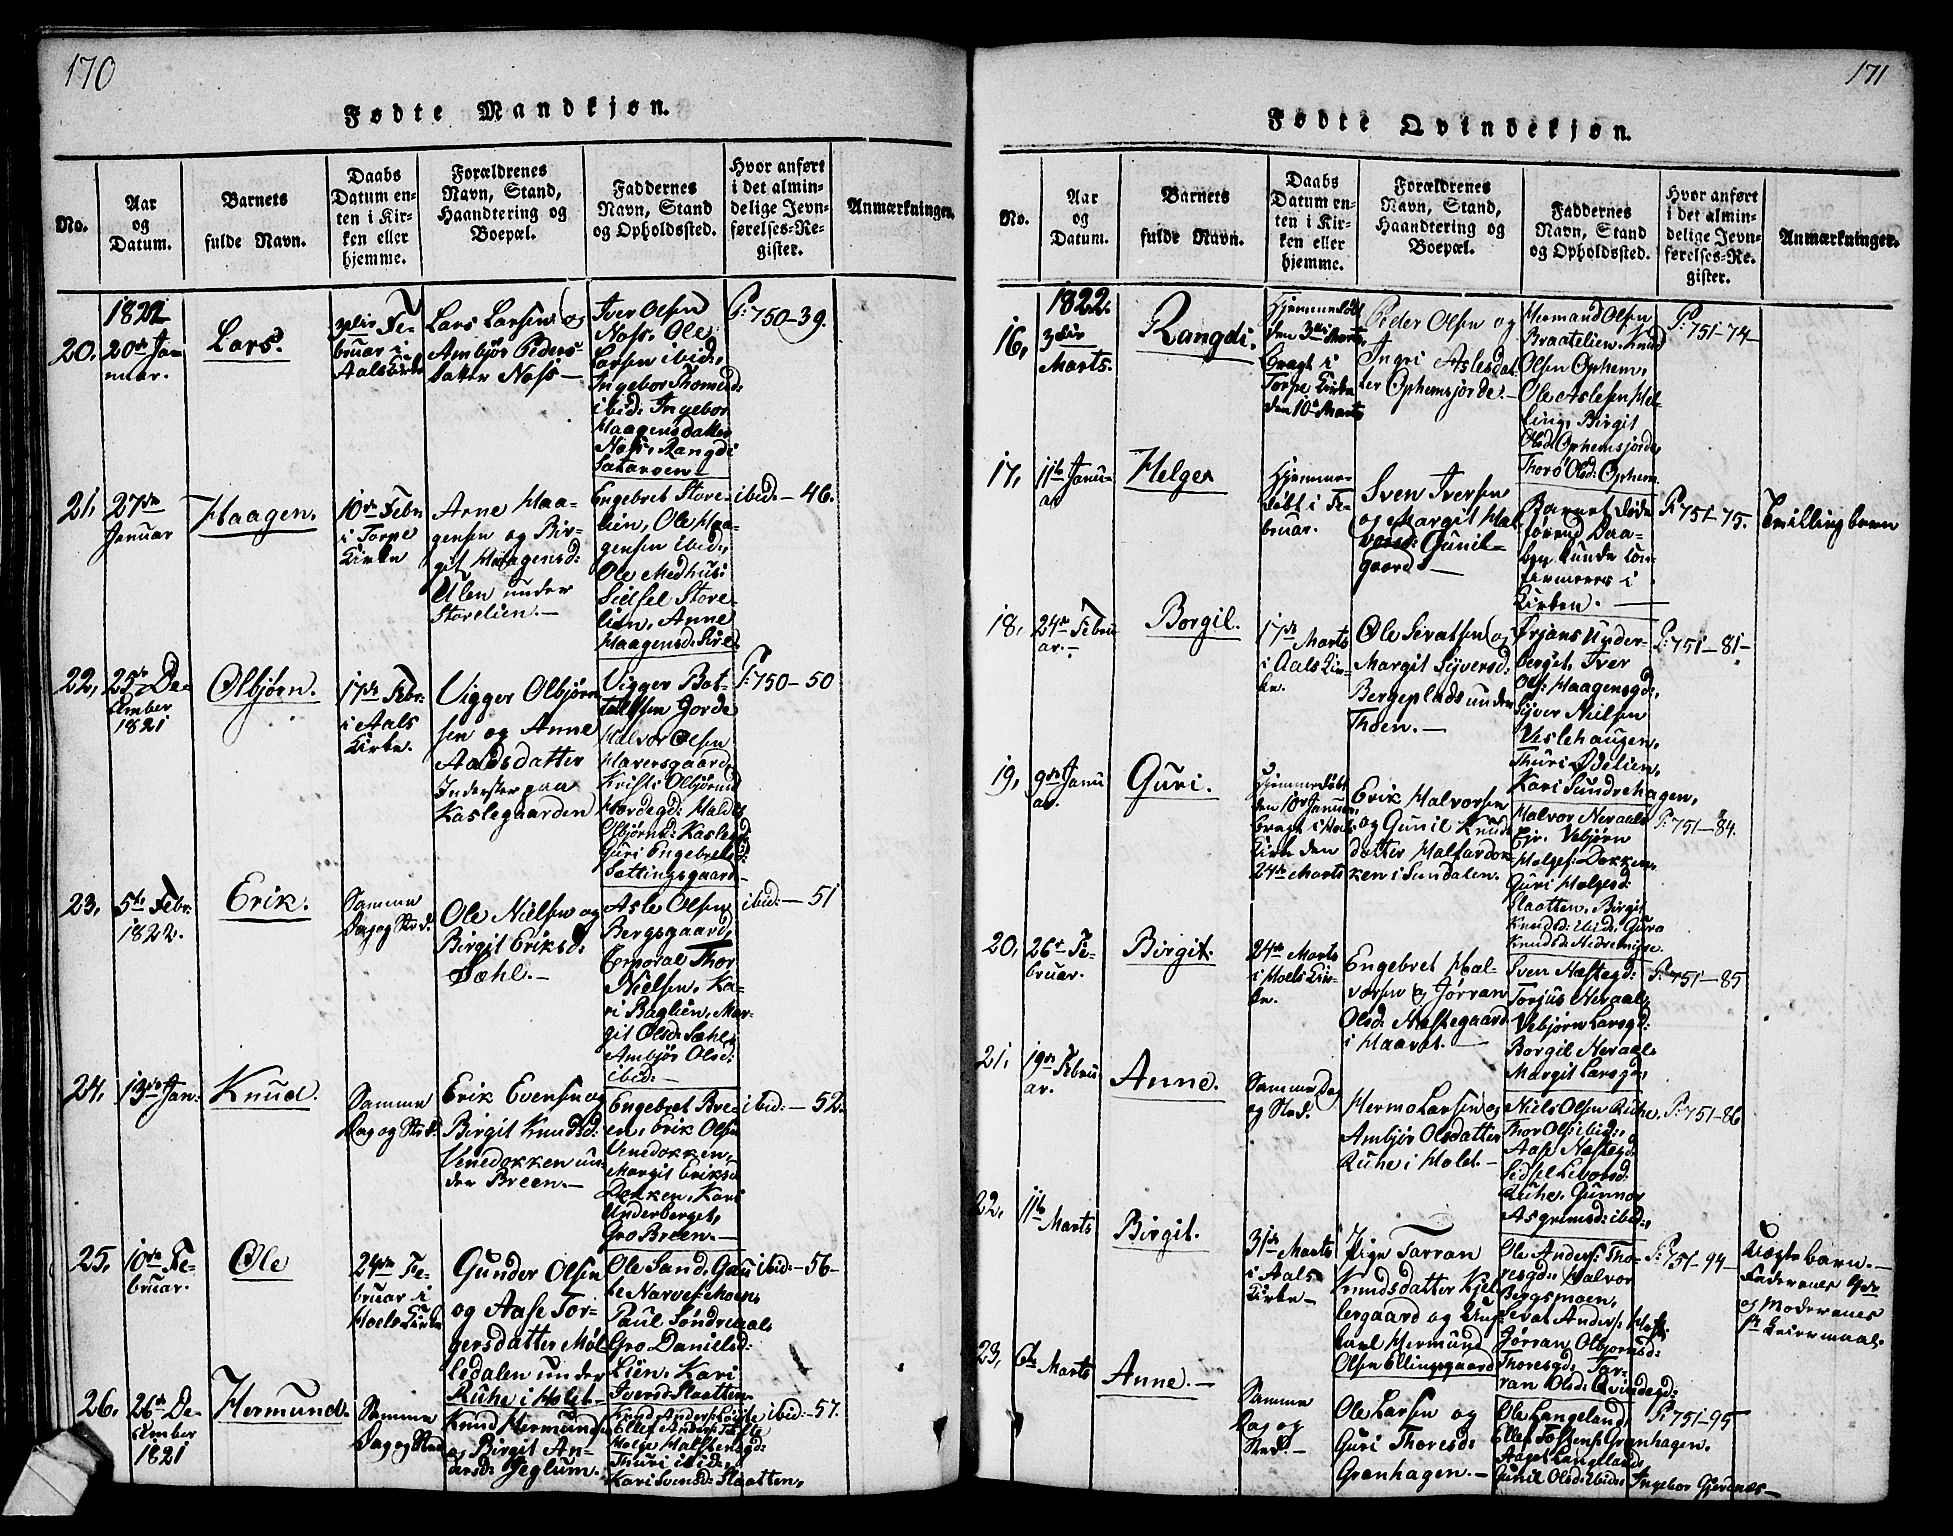 170
Fødte Mandkjøn.
No.
Aar
og
Datum.
Barnets
fulde Navn.
Daabs
Datum en-
ten i Kir-
ken eller
hjemme.
Forældrenes
Navn, Stand,
Haandtering og
Boepæl.
Faddernes
Navn, Stand
og Opholdssted.
Hvor anført
i det almin-
delige Jevn-
førelses-Re-
gister.
Anmærkninger.
1822
20, 20de Jan
nuar.
Lars.
3die Fe-
bruar i
Aals Kirke
Lars Larsen og
Ambjør Peders-
datter Noss —
Iver Olsen
Noss, Ole
Larsen ibid:,
Ingebor Thomesd:
ibid: Ingebor
Haagensdatter
Noss, Rangdi
Sataroen —
P: 750-39.
21, 27de
Januar
Haagen.
10de Febr
i Torpe
Kirke
Arne Haa-
gensen og Bir-
git Haagensd:
Ulen under
Storelien. —
Engebret Store-
lien, Ole Haa-
gensen ibid:,
Ole Medhus,
Sidsel Store-
lien, Anne
Haagensd:
ibid: — 46.
22, 25de De-
cember
1821
Olbjørn.
17de Febr
i Aals
Kirke.
Vigger Olbjørn
sen og Anne
Aslesdatter
Inderster paa
Kaslegaarden
Vigger Bot-
tolfsen Gorde
Halvor Olsen
Haversgaard,
Kristi Olbjørnsd
P: 750-50
Guri Engebretsd
Sattingsgaard —
23, 5te Febr.
1822.
Erik.
Samme
Dag og Sted.
Ole Nielsen og
Birgit Eriksd:
Sæhl. —
Asle Olsen
Bergsgaard,
Corporal Thor
Nielsen, Ka-
ri Baglien, Mar-
git Olsd: Sæhl,
Ambjør Olsd:
ibid: —
ibid: — 51
24, 13de Jan:
Knud.
Samme
Dag og Sted.
Erik Evensen og
Birgit Knudsd:
Venedokken un-
der Breen. —
Engebret Bre-
en, Erik Olsen
Venedokken,
Margit Eriksd
Dokken, Kari
Underberget,
Gro Breen. —
ibid: — 52.
25, 10de Fe-
bruar.
Ole
24de Fe-
bruar i
Hoels Kirke
Gunder Olsen
og Aase Tor-
gersdatter Møl-
ledalen under
Ruhe i Holet —
Ole Sand, Gau
te Narvesmoen,
Paul Søndreaal,
Gro Danielsd:
Lien, Kari
Iversd: Slaatten.
ibid: — 56 —
26, 26de De-
cember
1821
Hermund.
Samme
Dag og Sted
Knud Hermunds:
og Birgit An-
dersd: Jeglum.
Helge Halstensgd:
Thuri ibid:,
Kari Svensd: Slaatten,
ibid: — 57.
171
Fødte Qvindekjøn.
No.
Aar
og
Datum.
Barnets
fulde Navn.
Daabs
Datum en-
ten i Kir-
ken eller
hjemme.
Forældrenes
Navn, Stand,
Haandtering og
Boepæl.
Faddernes
Navn, Stand
og Opholdssted.
Hvor anført
i det almin-
delige Jevn-
førelses-Re-
gister.
Anmærkninger.
1822.
16, 3die
Marts.
Rangdi.
Hjemmedøbt
den 3die Marts,
bragt i
Torpe Kirke
den 10de Marts
Peder Olsen og
Ingri Aslesdat
ter Ophemsjorde. —
Hermand Olsen
Braatelien, Knud
Olsen Ophem,
Ole Aslesen Hel-
ling, Birgit
Olsd: Ophemsjorde,
Thorø Olsd: Ophem
P: 751-74 —
17, 11te Janu-
ar
Helge
Hjemme-
døbt i Fe-
bruar.
Sven Iversen
og Margit Hal
vorsd: Gunil-
gaard. —
Barnet døde
førend Daa-
ben kunde con-
firmeres i
Kirken. —
P: 751-75.
Tvillingbarn
18, 24de Febru
ar. —
Borgil.
17de Marts
i Aals Kir-
ke.
Ole Sivatsen og
Margit Sjversd:
Bergeplads under
Thoen. —
Ørjans Under-
berget, Iver
Ols: Haagensgd,
Sjver Nielsen
Veslehaugen,
Thuri Ødelien,
Kari Sundrehagen,
P: 751-81 —
19, 9de Janu
ar.
Guri.
Hjemmedøbt
den 10de Januar,
bragt i Hoels
Kirke den
24de Marts
Erik Halvorsen
og Gunil Knuds
datter Halfardok
ken i Sundalen.
Halvor Neraal,
Ejv. Vebjørn
Helges: Dokken,
Guri Helgesd:
Slaatten, Birgit
Knudsd: ibid: Guro
Knudsd: Hedremisse.
P: 751-84.
20, 26de Fe-
bruar.
Birgit.
24de Marts
i Hoels Kir-
ke.
Engebret Hal-
vorsen og Jørran
Olsd: Næstegaard
i Haavet. —
Sven Næstegd:
Torjus Neraal,
Vebjørn Larsgd:
Borgil Neraal,
Margit Larsgd:
P: 751-85
21, 19de Febru
ar.
Anne.
Samme Dag
og Sted.
Hermo Larsen og
Ambjør Olsdatter
Ruhe i Holet. —
Niels Olsen Ruhe,
Thor Ols: ibid:,
Aase Næstegd:
Sidsel Levorsd:
Ruhe, Gunnor
Asgrimsd: ibid:,
P: 751-86
22, 11te
Marts
Birgit.
31de Marts
i Aals
Kirke —
Pige Jorran
Knudsdatter Kjel
lergaard og Ung-
karl Hermund
Olsen Ellingsgaard
Ole Anders: Tho-
resgd: Halvor
Bergsmoen,
Sevat Anders:
Jørran Olbjørnsd:
Thoresgd: Jør-
ran Olsd: Qvindegd:
P: 751-94 —
Uægtebarn. —
Faderenes 4de
og Moderenes
1te Leiermaal.
23, 6te Marts
Anne. —
Samme
Dag og
Sted. —
Ole Larsen og
Guri Thoresd:
Grønhagen. —
Ole Langeland,
Ellef Tostens: Grønhagen,
Aage Langeland,
Gunil Olsd: ibid: Ingebor Gjerdnæs —
P: 751-95